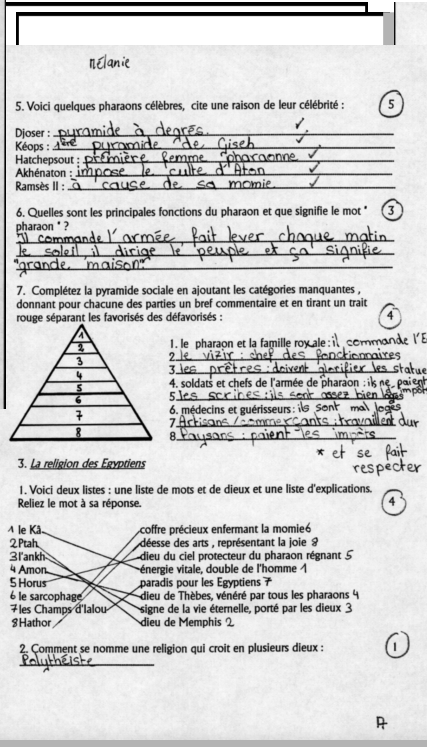 Mélanie
5. Voici quelques pharaons célèbres, cite une raison de leur célébrité :
5
Djoser : pyramide à degrés.
Kéops : 1ère pyramide de Giseh
Hatchepsout : première femme pharaonne
Akhénaton : impose le culte d'Aton
Ramsès II : à cause de sa momie
6. Quelles sont les principales fonctions du pharaon et que signifie le mot "
3
pharaon " ?
Il commande l'armée, fait lever chaque matin
le soleil, il dirige le peuple et ça signifie
"grande maison".
7. Complétez la pyramide sociale en ajoutant les catégories manquantes ,
donnant pour chacune des parties un bref commentaire et en tirant un trait
rouge séparant les favorisés des défavorisés :
4
1
2
3
4
5
6
7
8
1. le pharaon et la famille royale : il commande l'E
2 le vizir : chef des fonctionnaires
3 les prêtres : doivent glorifier les statue
4. soldats et chefs de l'armée de pharaon : ils ne paient
impôt
5 les scribes : ils sont assez bien logés
6. médecins et guérisseurs : ils sont mal logés
7 Artisans / commerçants : travaillent dur
8 Paysans : paient les impôts
* et se fait
respecter
3. La religion des Egyptiens
1. Voici deux listes : une liste de mots et de dieux et une liste d'explications.
Reliez le mot à sa réponse.
4
1 le Kâ
coffre précieux enfermant la momie 6
2 Ptah
déesse des arts , représentant la joie 8
3 l'ankh
dieu du ciel protecteur du pharaon régnant 5
4 Amon
énergie vitale, double de l'homme 1
5 Horus
paradis pour les Egyptiens 7
6 le sarcophage
dieu de Thèbes, vénéré par tous les pharaons 4
7 les Champs d'Ialou
signe de la vie éternelle, porté par les dieux 3
8 Hathor
dieu de Memphis 2
2. Comment se nomme une religion qui croit en plusieurs dieux :
1
Polythéiste